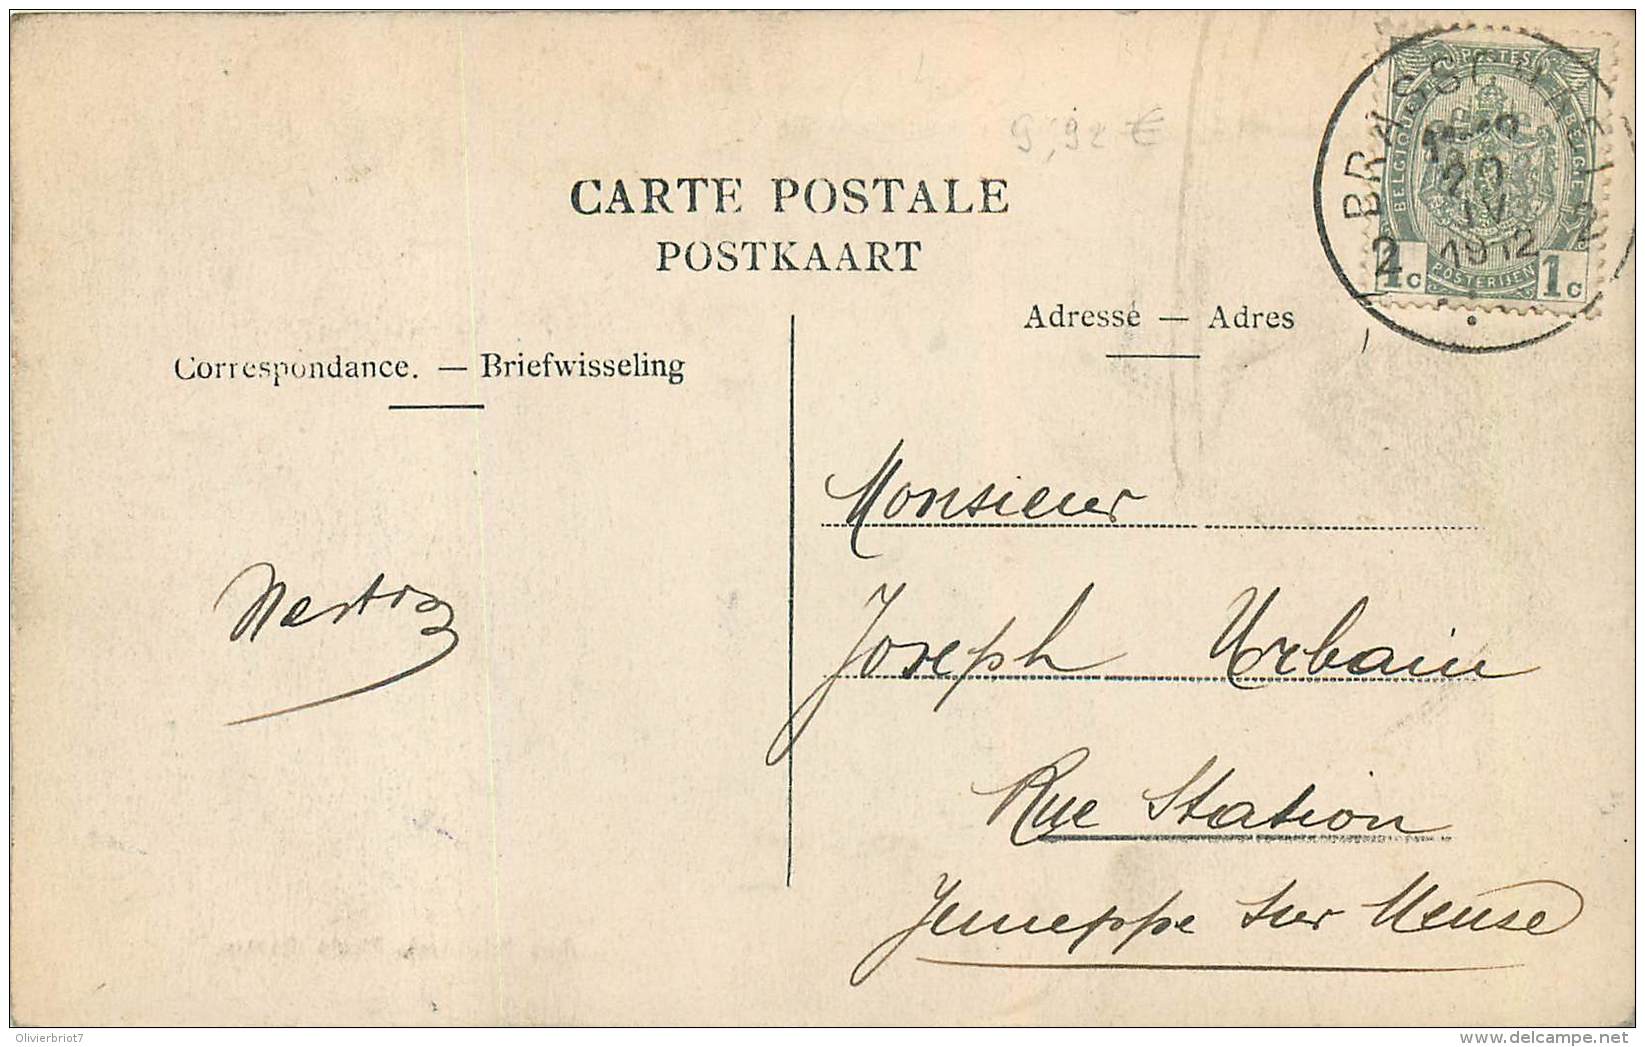 9,92 €
CARTE POSTALE
POSTKAART
POSTES
BELGIQUE
BELGIE
POSTERIJEN
1c 1c
20
IV
1912
Adresse — Adres
Correspondance. — Briefwisseling
Monsieur
Nestor
Joseph Urbain
Rue Station
Jemeppe sur Meuse
Olivierbriot7
delcampe.net